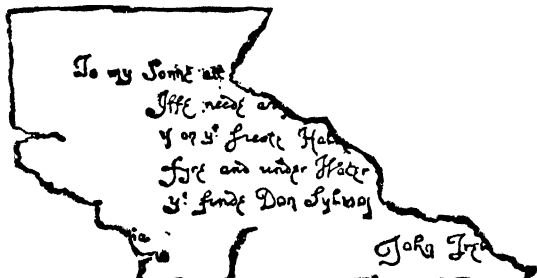 To my Sonne att
Iffe neede an
y on yᵉ freste Ha
fyre and under Water
yᵉ finde Don Sylvio
John Tre